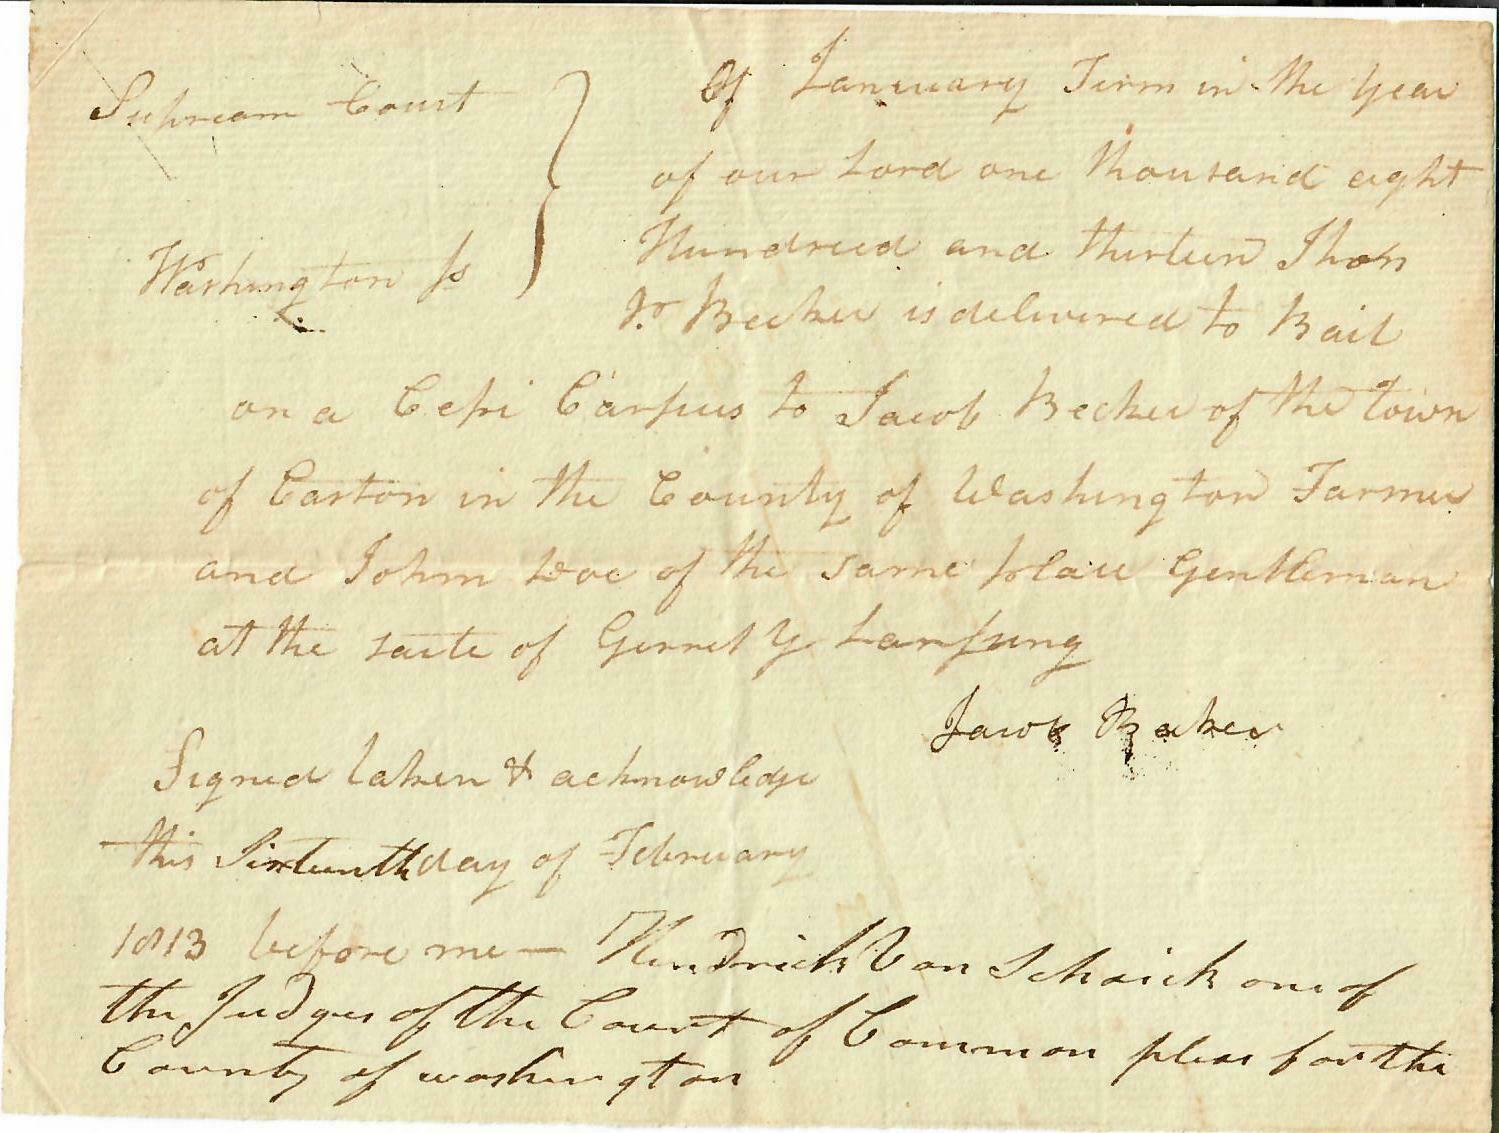 Supream Court
Of January Term in the Year
of our Lord one thousand eight
Hundreed and thirteen Jhon
Washington ss
Jr. Becker is delivered to Bail
on a Cepi Carpus to Jacob Becker of the town
of Easton in the County of Washington Farmer
and Johm Doe of the same place Gentleman
at the suite of Gerret Y Lansing
Jacob Becker
Signed taken & acknowledge
this Sixteenth day of February
1813 before me — Hendrick Van Schaick one of
the Judges of the Court of Common pleas for the
County of washington